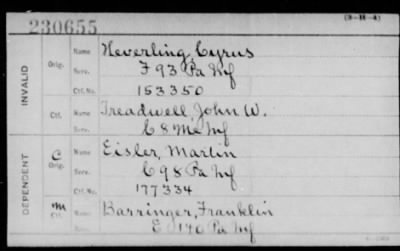 (3-H-4)
230655
INVALID
Orig.
Name Heverling, Cyrus
Serv. F 93 Pa Inf
Ctf. No. 153350
Ctf.
Name Treadwell, John W.
Serv. C 8 Me Inf
DEPENDENT
C
Orig.
Name Eisler, Martin
Serv. C 98 Pa Inf
Ctf. No. 177334
m
Ctf.
Name Barringer, Franklin
Serv. E 190 Pa Inf